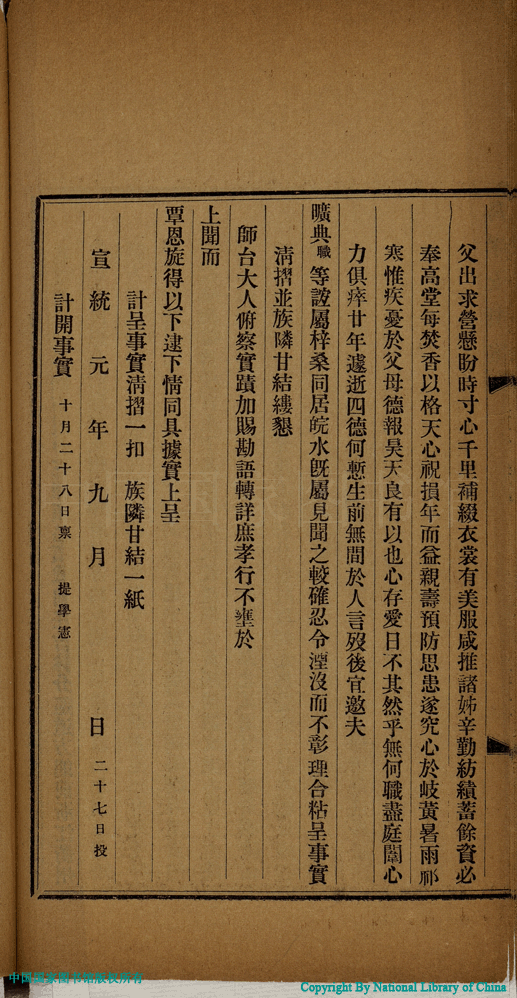 父出求營懸盼時寸心千里補綴衣裳有美服咸推諸姊辛勤紡績蓄餘資必
奉高堂每焚香以格天心祝損年而益親壽預防思患遂究心於岐黃暑雨祁
寒惟疾憂於父母德報昊天良有以也心存愛日不其然乎無何職盡庭闈心
力俱瘁廿年遽逝四德何慙生前無間於人言歿後宜邀夫
曠典職等誼屬梓桑同居皖水旣屬見聞之較確忍令湮沒而不彰理合粘呈事實
清摺並族隣甘結縷懇
師台大人俯察實蹟加賜勘語轉詳庶孝行不壅於
上聞而
覃恩旋得以下逮下情同具據實上呈
計呈事實清摺一扣 族隣甘結一紙
宣統元年九月 日 二十七日投
計開事實 十月二十八日禀 提學憲
中国国家图书馆版权所有
Copyright By National Library of China